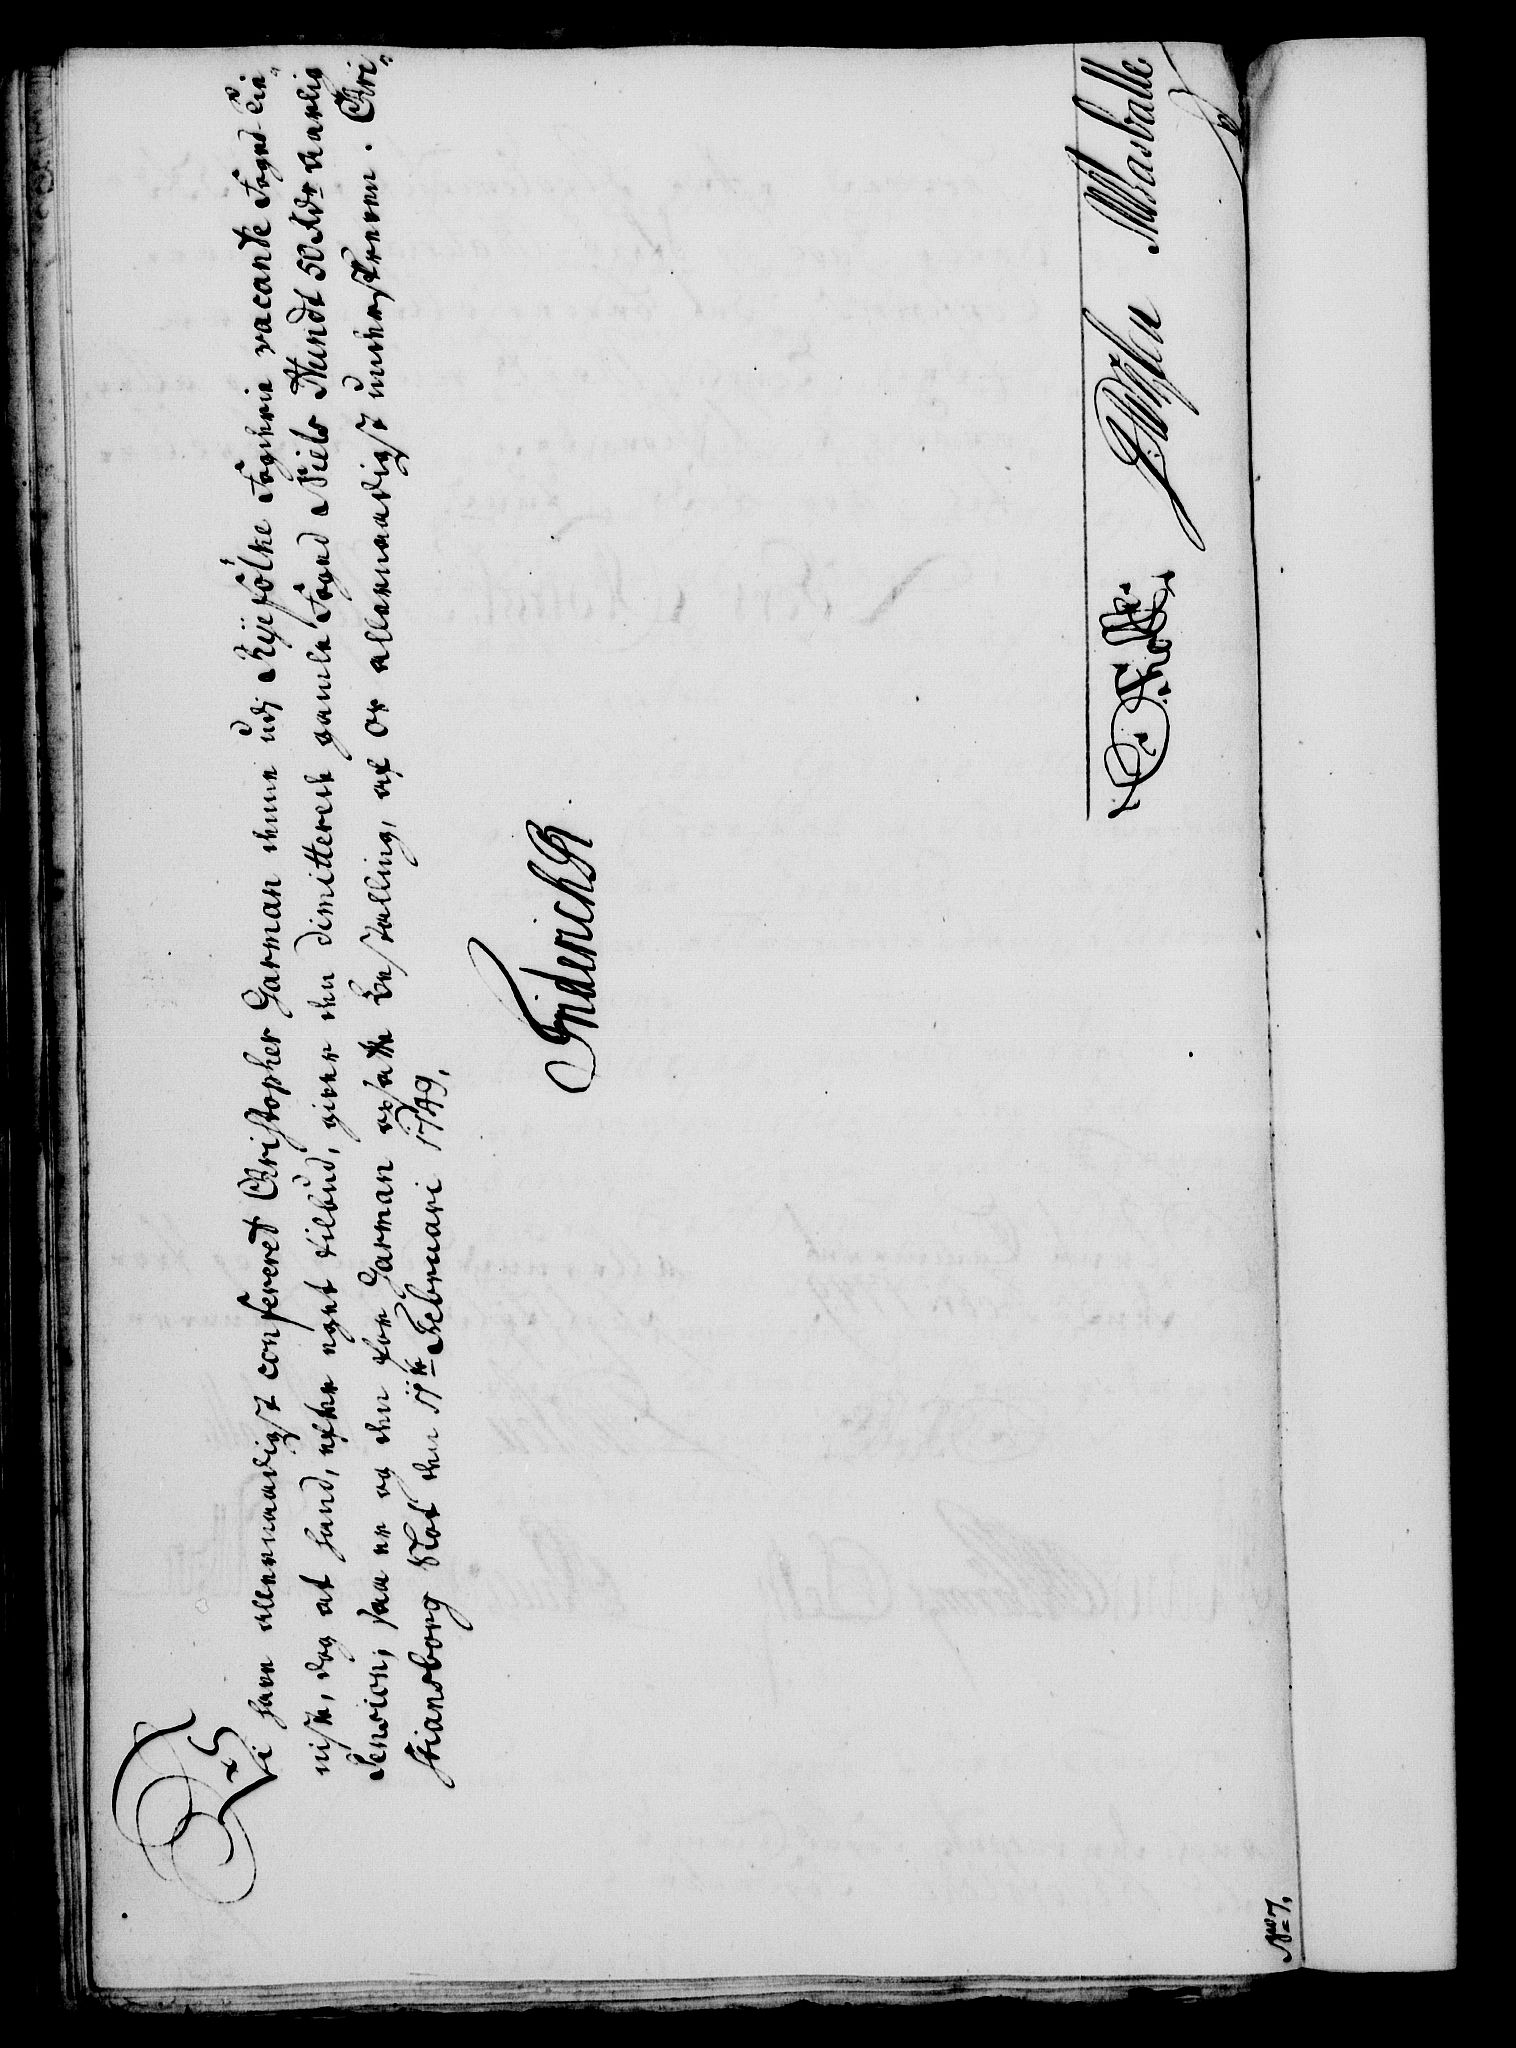 Vi have allernaadigst confereret Christopher Garman denne udj Ryefölke Fogderie vacante Fogед-Tie„
niste, dog at hand, efter eget tilbud, giver den dimitterede gamle Foged Niels Thundt 50 Rdr aarlig
Pension, saa er og den for Garman opsatte Bestalling, af Os allernaadigst underskreven. Chri„
stiansborg Slot den 11te Februari 1749.
Friderich R
Holst